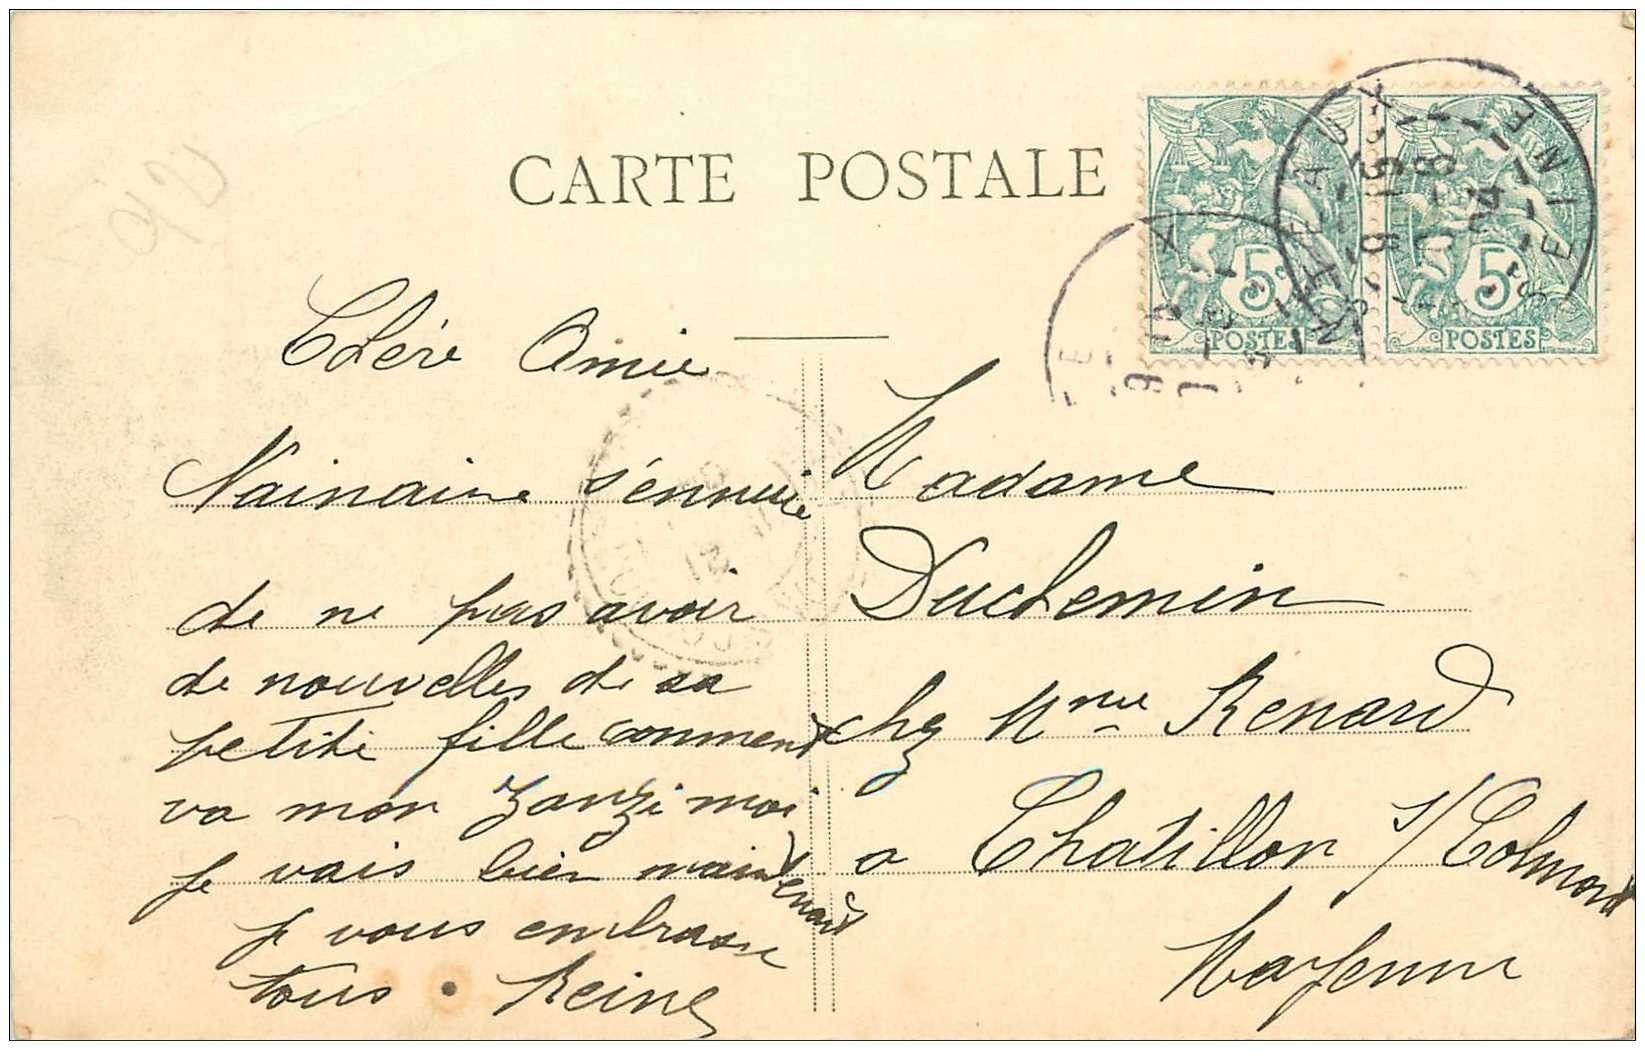 CARTE POSTALE
5c
POSTES
5c
POSTES
PUTEAUX
SEINE
Chére Amie
Nainaine s'ennuie
de ne pas avoir
de nouvelles de sa
petite fille comment
va mon Zanzi moi
je vais bien maintenant
je vous embrasse
tous . Reine
Madame
Duchemin
chez Mme Renard
a Chatillon s/ Colmont
Mayenne